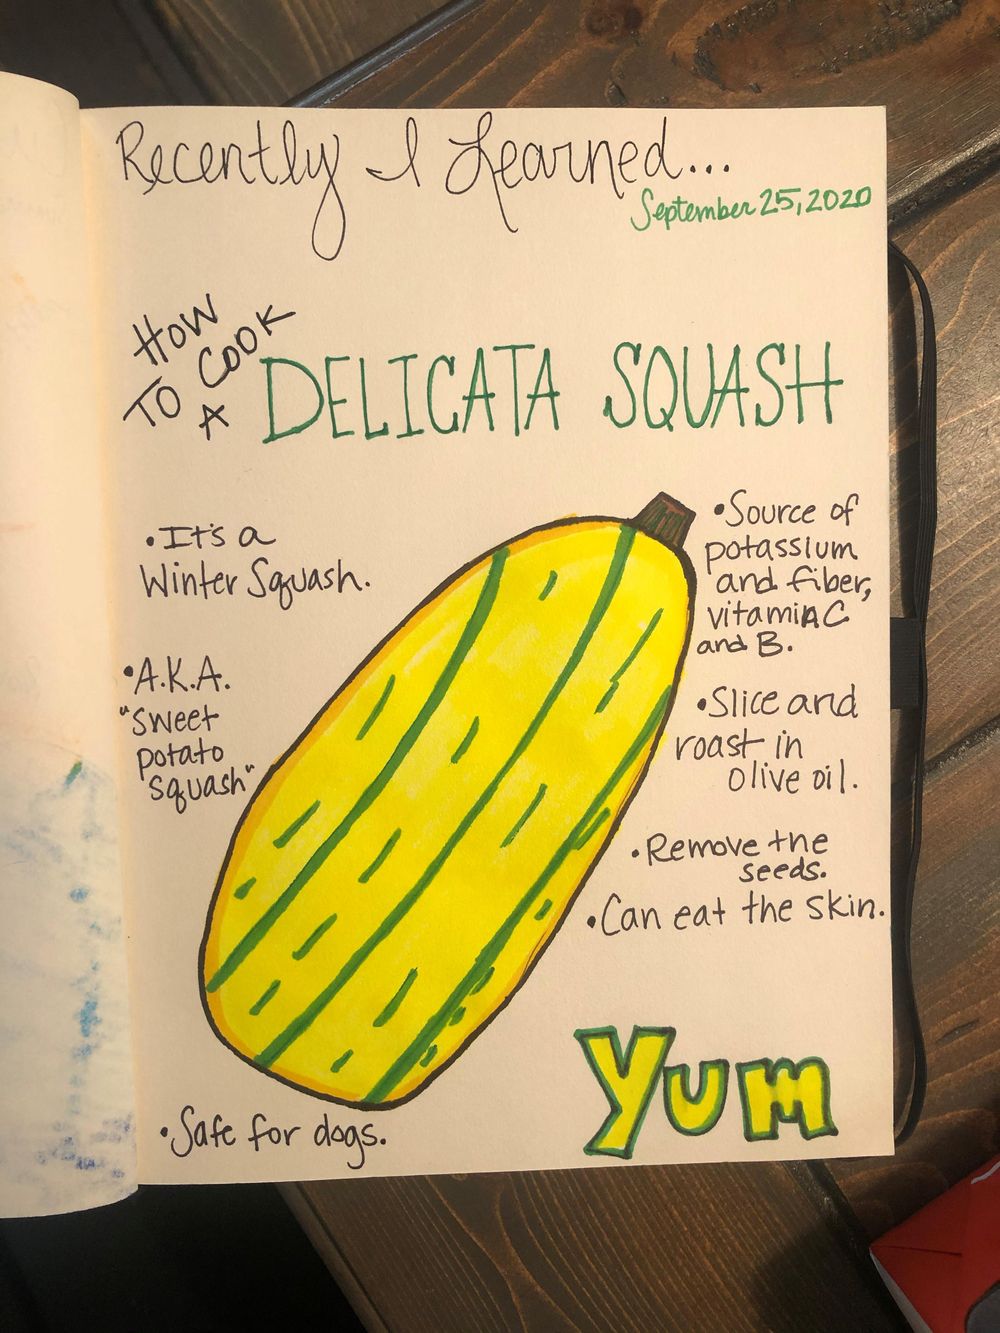 Recently I Learned...
September 25, 2020
HOW
TO COOK
A
DELICATA SQUASH
•It's a
Winter Squash.
•A.K.A.
"sweet
potato
squash"
•Source of
potassium
and fiber,
vitamin C
and B.
•Slice and
roast in
olive oil.
•Remove the
seeds.
•Can eat the skin.
•Safe for dogs.
Yum